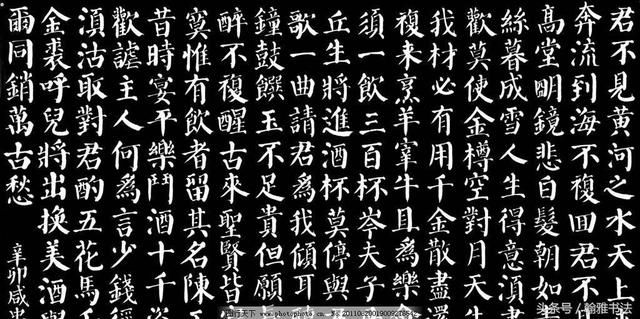 君不見黃河之水天上
奔流到海不複回君不
高堂明鏡悲白髮朝如
絲暮成雪人生得意湏
歡莫使金樽空對月天生
我材必有用千金散盡還
複来烹羊宰牛且為樂
須一飲三百杯岑夫子
丘生將進酒杯莫停與
歌一曲請君為我傾耳
鐘鼓饌玉不足貴但願
醉不複醒古來聖賢皆
寞惟有飲者留其名陳王
昔時宴平樂鬥酒十千
歡謔主人何為言少錢徑
湏沽取對君酌五花馬千
金裘呼兒將出換美酒與
爾同銷萬古愁
辛卯咸
头条号 / 翰雅书法